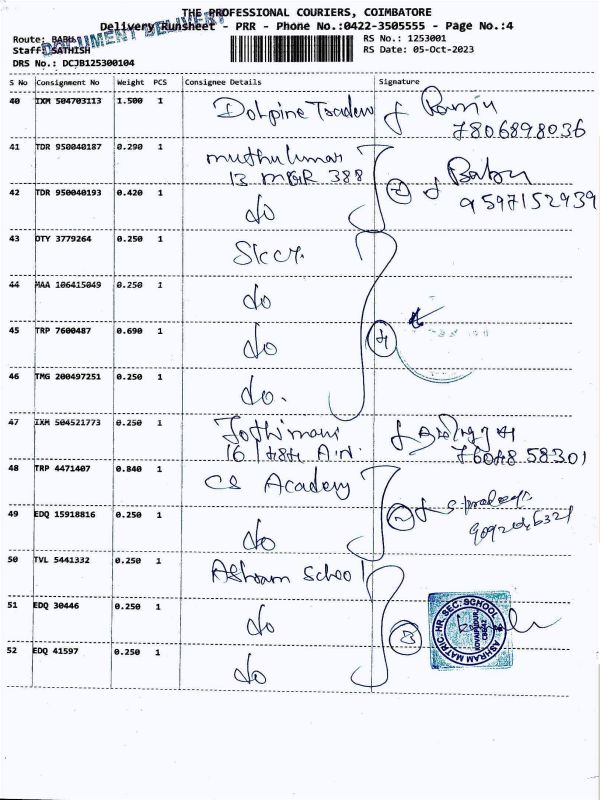 THE PROFESSIONAL COURIERS, COIMBATORE
Delivery Runsheet - PRR - Phone No.:0422-3505555 - Page No.:4
DOCUMENT DELIVERY
Route: BABU
Staff: SATHISH
DRS No.: DCJB125300104
RS No.: 1253001
RS Date: 05-Oct-2023
S No Consignment No Weight PCS Consignee Details Signature
40 IXM 504703113 1.500 1
7806898036
41 TDR 950040187 0.290 1 muthukumar
13 MGR 388
Babu
9597152939
42 TDR 950040193 0.420 1 do
43 OTY 3779264 0.250 1
44 MAA 106415049 0.250 1 do
45 TRP 7600487 0.690 1 do
4
46 TMG 200497251 0.250 1 do.
47 IXM 504521773 0.250 1 Jothimani
16
48 TRP 4471407 0.840 1 CS Academy
2
49 EDQ 15918816 0.250 1 do
50 TVL 5441332 0.250 1 Ashram School
51 EDQ 30446 0.250 1 do
3
ASHRAM MATRIC. HR. SEC. SCHOOL
52 EDQ 41597 0.250 1 do